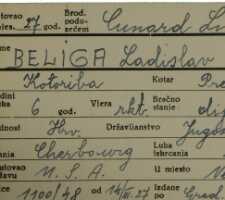 tovao
mjes. 27 god. Brod. poduzećem Cunard Li
me BELIGA Ladislav
Kotoriba Kotar Pre
dini
ka 6 god. Vjera rkt. Bračno stanje dij
dnost Hrv. Državljanstvo Jugos
Cherbourg Luka iskrcanja
U.S.A. U mjesto
ice 1100/48 od 14/III. 27 Izdane po Grad.